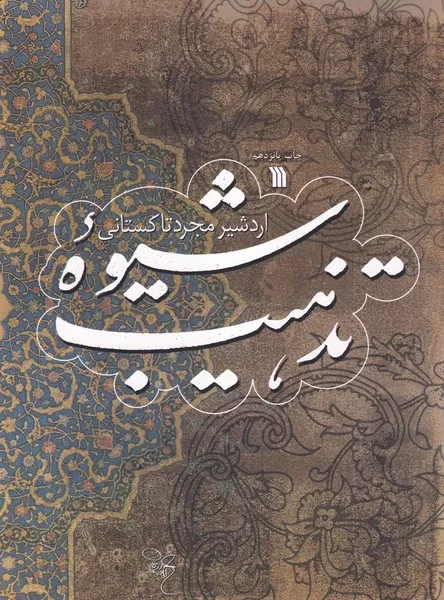 چاپ پانزدهم
اردشیر مجرد تاکستانی
شیوهٔ
تذهیب